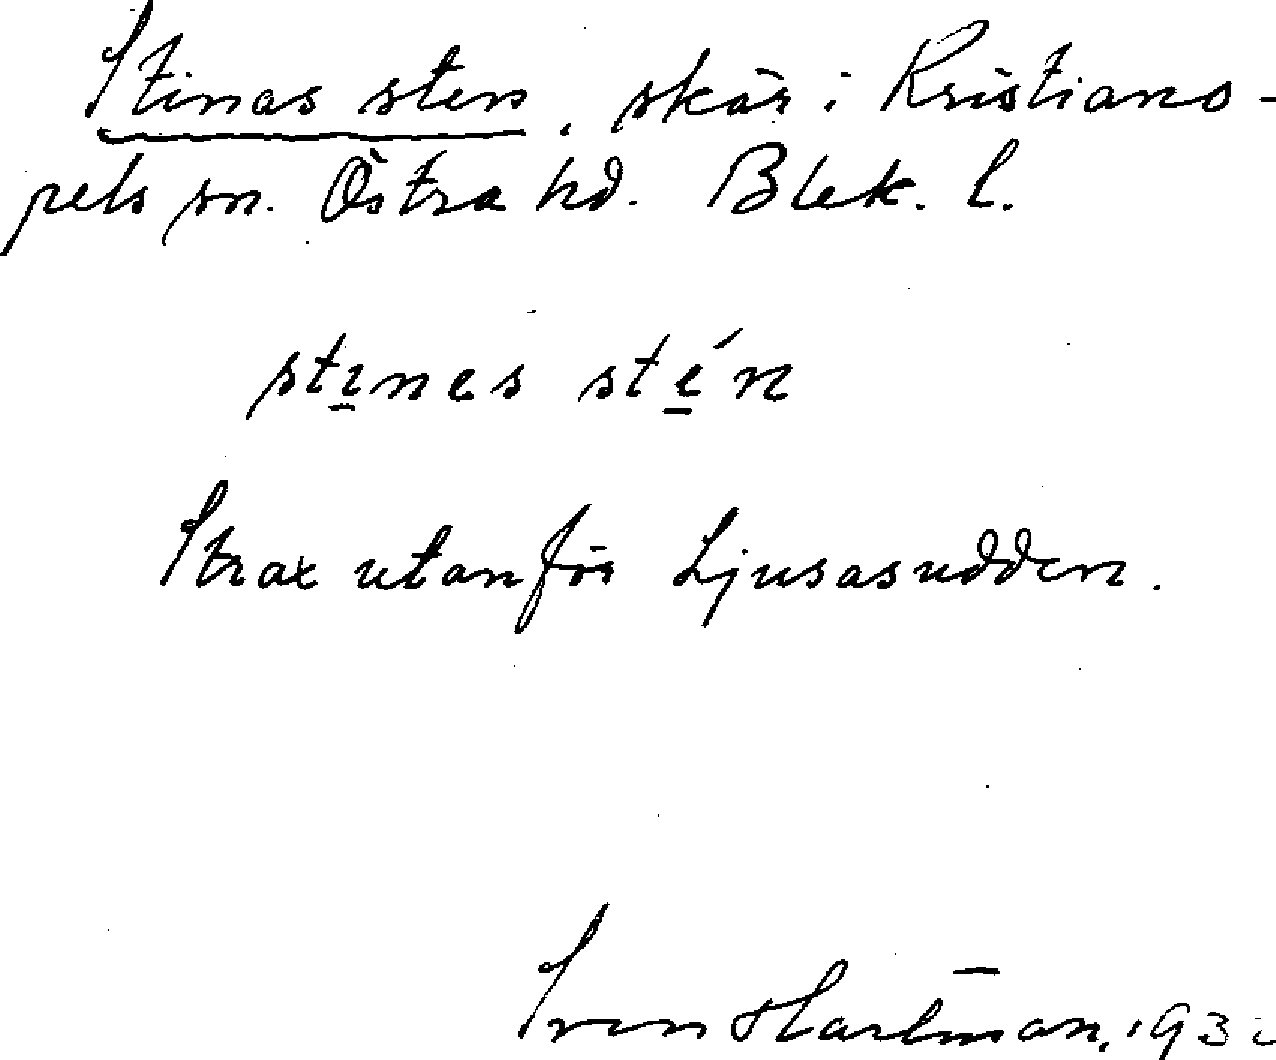 Stinas sten, skär i Kristiano-
pels sn. Östra hd. Blek. l.
stines stén
Strax utanför Ljusasudden.
Sven Hartman, 193